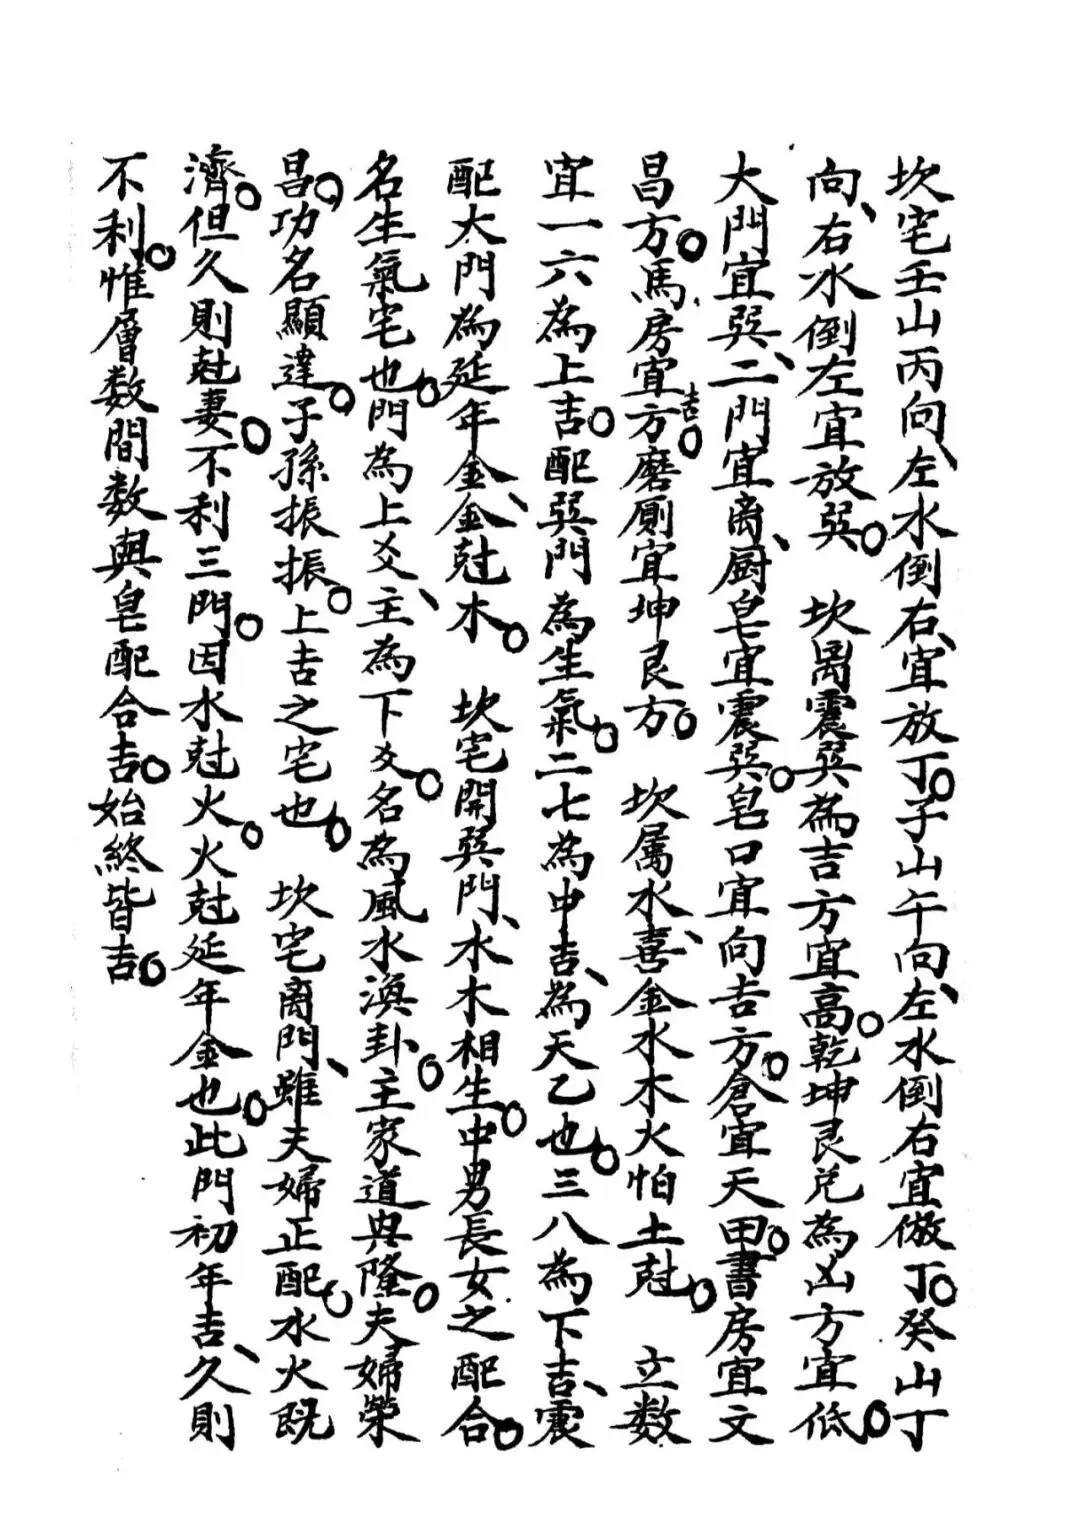 坎宅壬山丙向、左水倒右、宜放丁。子山午向、左水倒右宜倣丁。癸山丁
向、右水倒左宜放巽。 坎离震巽為吉方宜高。乾坤艮兌為凶方宜低。
大門宜巽、二門宜离、厨皂宜震巽。皂口宜向吉方。倉宜天甲。書房宜文
昌方。馬房宜吉方。磨厠宜坤艮方。 坎属水、喜金水木火怕土尅。 立数
宜一六為上吉。配巽門為生氣。二七為中吉、為天乙也。三八為下吉、震
配大門為延年金、金尅木。 坎宅開巽門、水木相生。中男長女之配合。
名生氣宅也。門為上爻、主為下爻。名為風水渙卦。主家道興隆。夫婦榮
昌。功名顯達。子孫振振。上吉之宅也。 坎宅离門、雖夫婦正配。水火既
濟。但久則尅妻。不利三門。因水尅火。火尅延年金也。此門初年吉、久則
不利。惟層数間数與皂配合吉。始終皆吉。